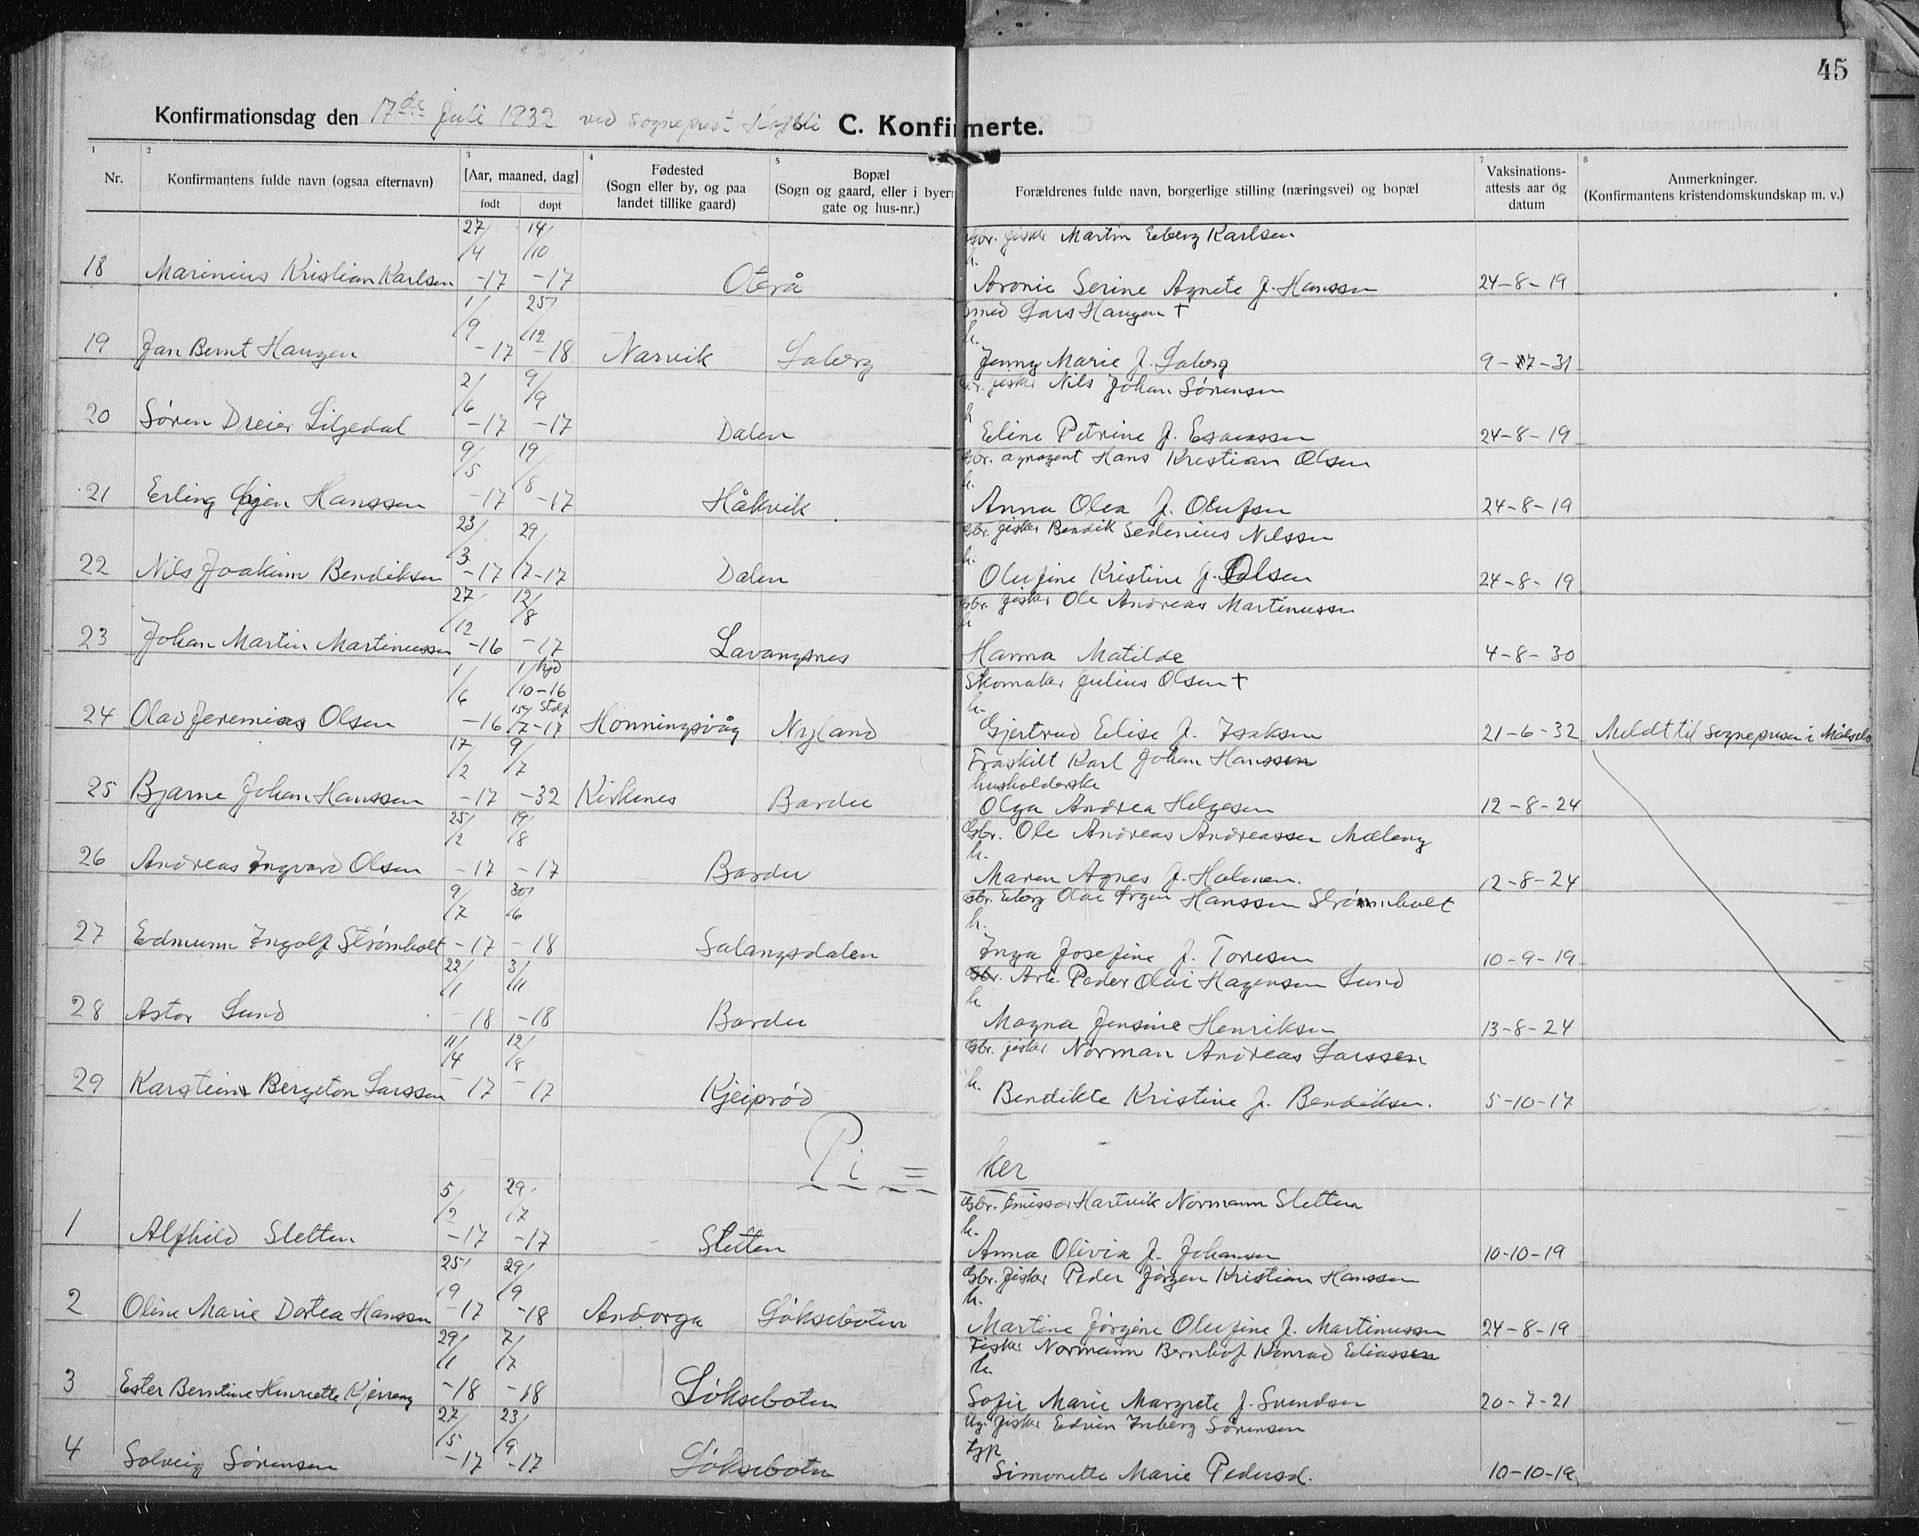 45
Konfirmationsdag den 17de Juli 1932 ved sogneprest
C. Konfirmerte.
1 2 3 4 5 7 8
Nr. Konfirmantens fulde navn (ogsaa efternavn) [Aar, maaned, dag] født døpt Fødested (Sogn eller by, og paa landet tillike gaard) Bopæl (Sogn og gaard, eller i byern gate og hus-nr.) Forældrenes fulde navn, borgerlige stilling (næringsvei) og bopæl Vaksinations-attests aar og datum Anmerkninger. (Konfirmantens kristendomskundskap m. v.)
27/4 14/10 Gbr. fisker Martin Edberg Karlsen
18 Marinius Kristian Karlsen -17 -17 Oterå h. Aronie Serine Agnete f. Hanssen 24-8-19
1/9 25/12 smed Lars Haugen †
19 Jan Bernt Haugen -17 -18 Narvik Laberg h. Jenny Marie f. Laberg 9-7-31
2/6 9/9 Gbr. fisker Nils Johan Sørensen
20 Søren Dreier Liljedal -17 -17 Dalen h. Eline Petrine f. Esaiassen 24-8-19
9/5 19/8 Gbr. agnagent Hans Kristian Olsen
21 Erling Hanssen -17 -17 Håkvik h. Anna Olea f. Olufsen 24-8-19
23/3 29/7 Gbr. fisker Bendik Sedenius Nilssen
22 Nils Joakim Bendiksen -17 -17 Dalen h. Olufine Kristine f. Olsen 24-8-19
27/12 12/8 Gbr. fisker Ole Andreas Martinussen
23 Johan Martin Martinussen -16 -17 Lavangsnes h. Hanna Matilde 4-8-30
1/6 1/10-16 hjd 15/7-17 Skomaker Julius Olsen †
24 Olav Jeremias Olsen -16 Honningsvåg Nyland h. Gjertrud Elise f. Isaksen 21-6-32 Meldt til sognepresten i Målselv
17/2 9/7 Fraskilt Karl Johan Hanssen
25 Bjarne Johan Hanssen -17 -32 Kirkenes Bardu husholderske Olga Andrea Helgesen 12-8-24
25/2 19/8 Gbr. Ole Andreas Andreassen Mæleng
26 Andreas Ingvard Olsen -17 -17 Bardu h. Maren Agnes f. Holmen. 12-8-24
9/7 30/6 Gbr. Edberg Olai Ørgen Hanssen Strømholt
27 Edmunn Ingolf Strømholt -17 -18 Salangsdalen h. Inga Josefine f. Toresen 10-9-19
22/1 3/11 Gbr. Arb. Peder Olai Hagensen Lund
28 Astor Lund -18 -18 Bardu h. Magna Jensine Henriksen 13-8-24
11/4 12/8 Gbr. fisker Norman Andreas Larssen
29 Karstein Bergeton Larssen -17 -17 Kjeiprød h. Bendikte Kristine f. Bendiksen. 5-10-17
Pi = ker
5/2 29/7 Gbr. Emissær Hartvik Normann Sletten
1 Alfhild Sletten -17 -17 Sletten h. Anna Olivia f. Johansen 10-10-19
25/9 29/9 Gbr. fisker Peder Jørgen Kristian Hanssen
2 Oline Marie Dortea Hanssen -17 -18 Andorga Løksebotn h. Martine Jørgine Olufine f. Martinussen 24-8-19
29/1 7/7 Fisker Normann Bernhof Konrad Eliassen
3 Ester Berntine Henriette Kjerreng -18 -18 Løksebotn h. Sofie Marie Margrete f. Svendsen 20-7-21
27/5 23/9 Ug. fisker Edvin Inberg Sørensen
4 Solveig Sørensen -17 -17 Løksebotn Simonette Marie Pedersd. 10-10-19